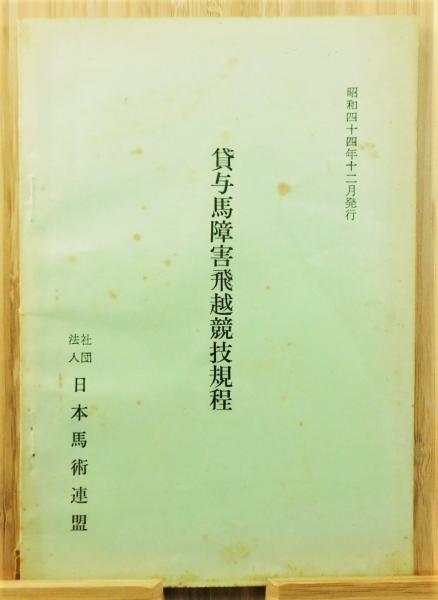 昭和四十四年十二月発行
貸与馬障害飛越競技規程
社団法人 日本馬術連盟